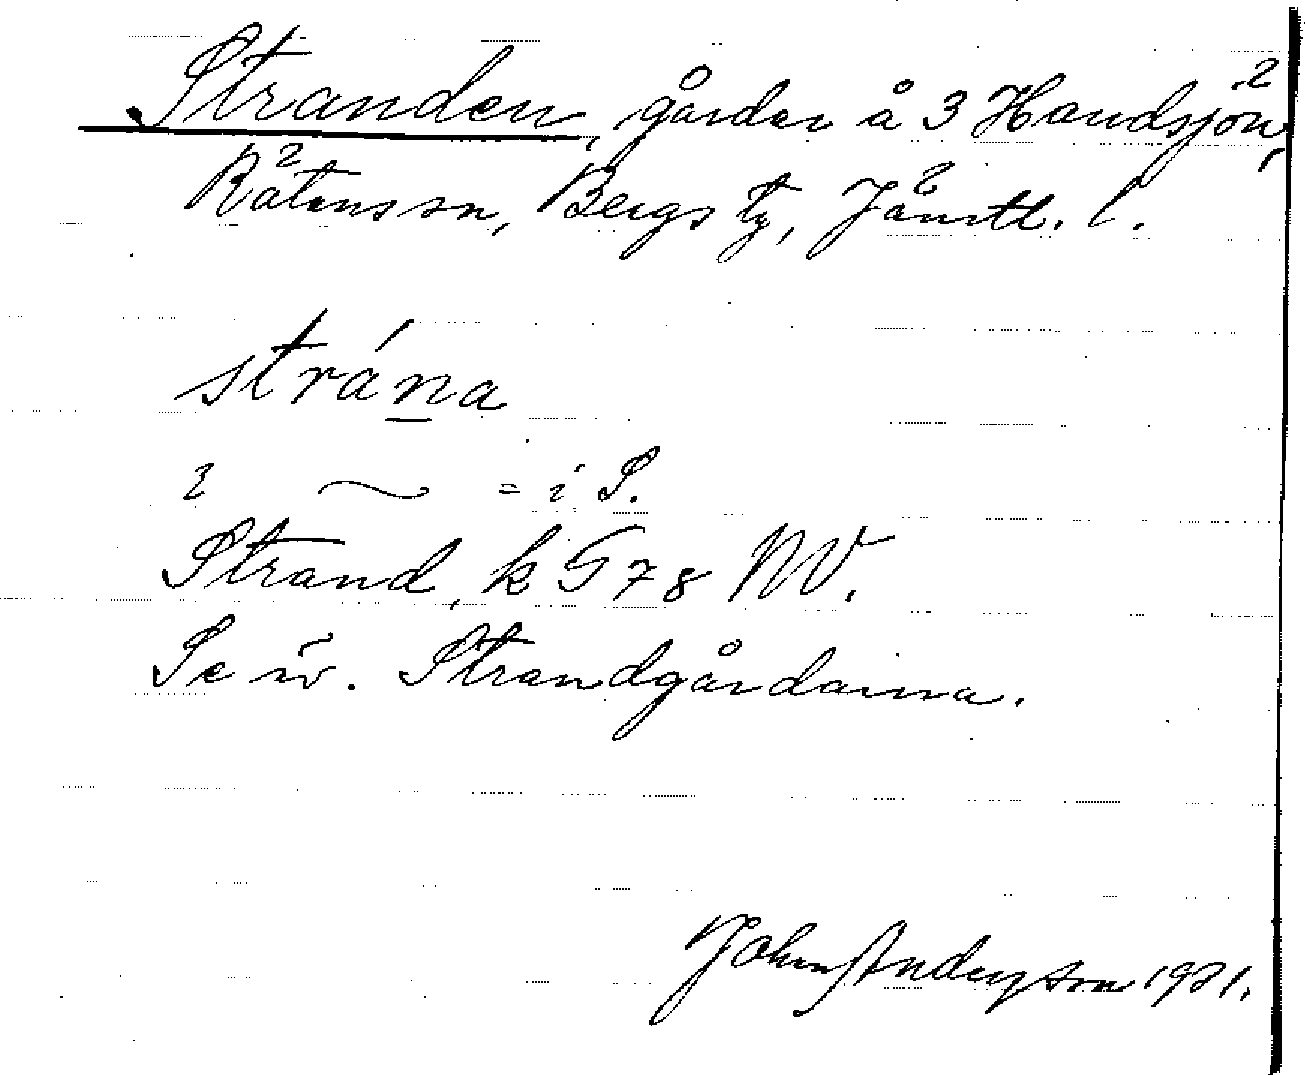 Stranden, gårdar å 3 Handsjön,
Rätans sn, Bergs tg, Jämtl. l.
strána
i ~ = i S.
Strand, k G 78 NV.
Se äv. Strandgårdarna.
John Anderson 1921.